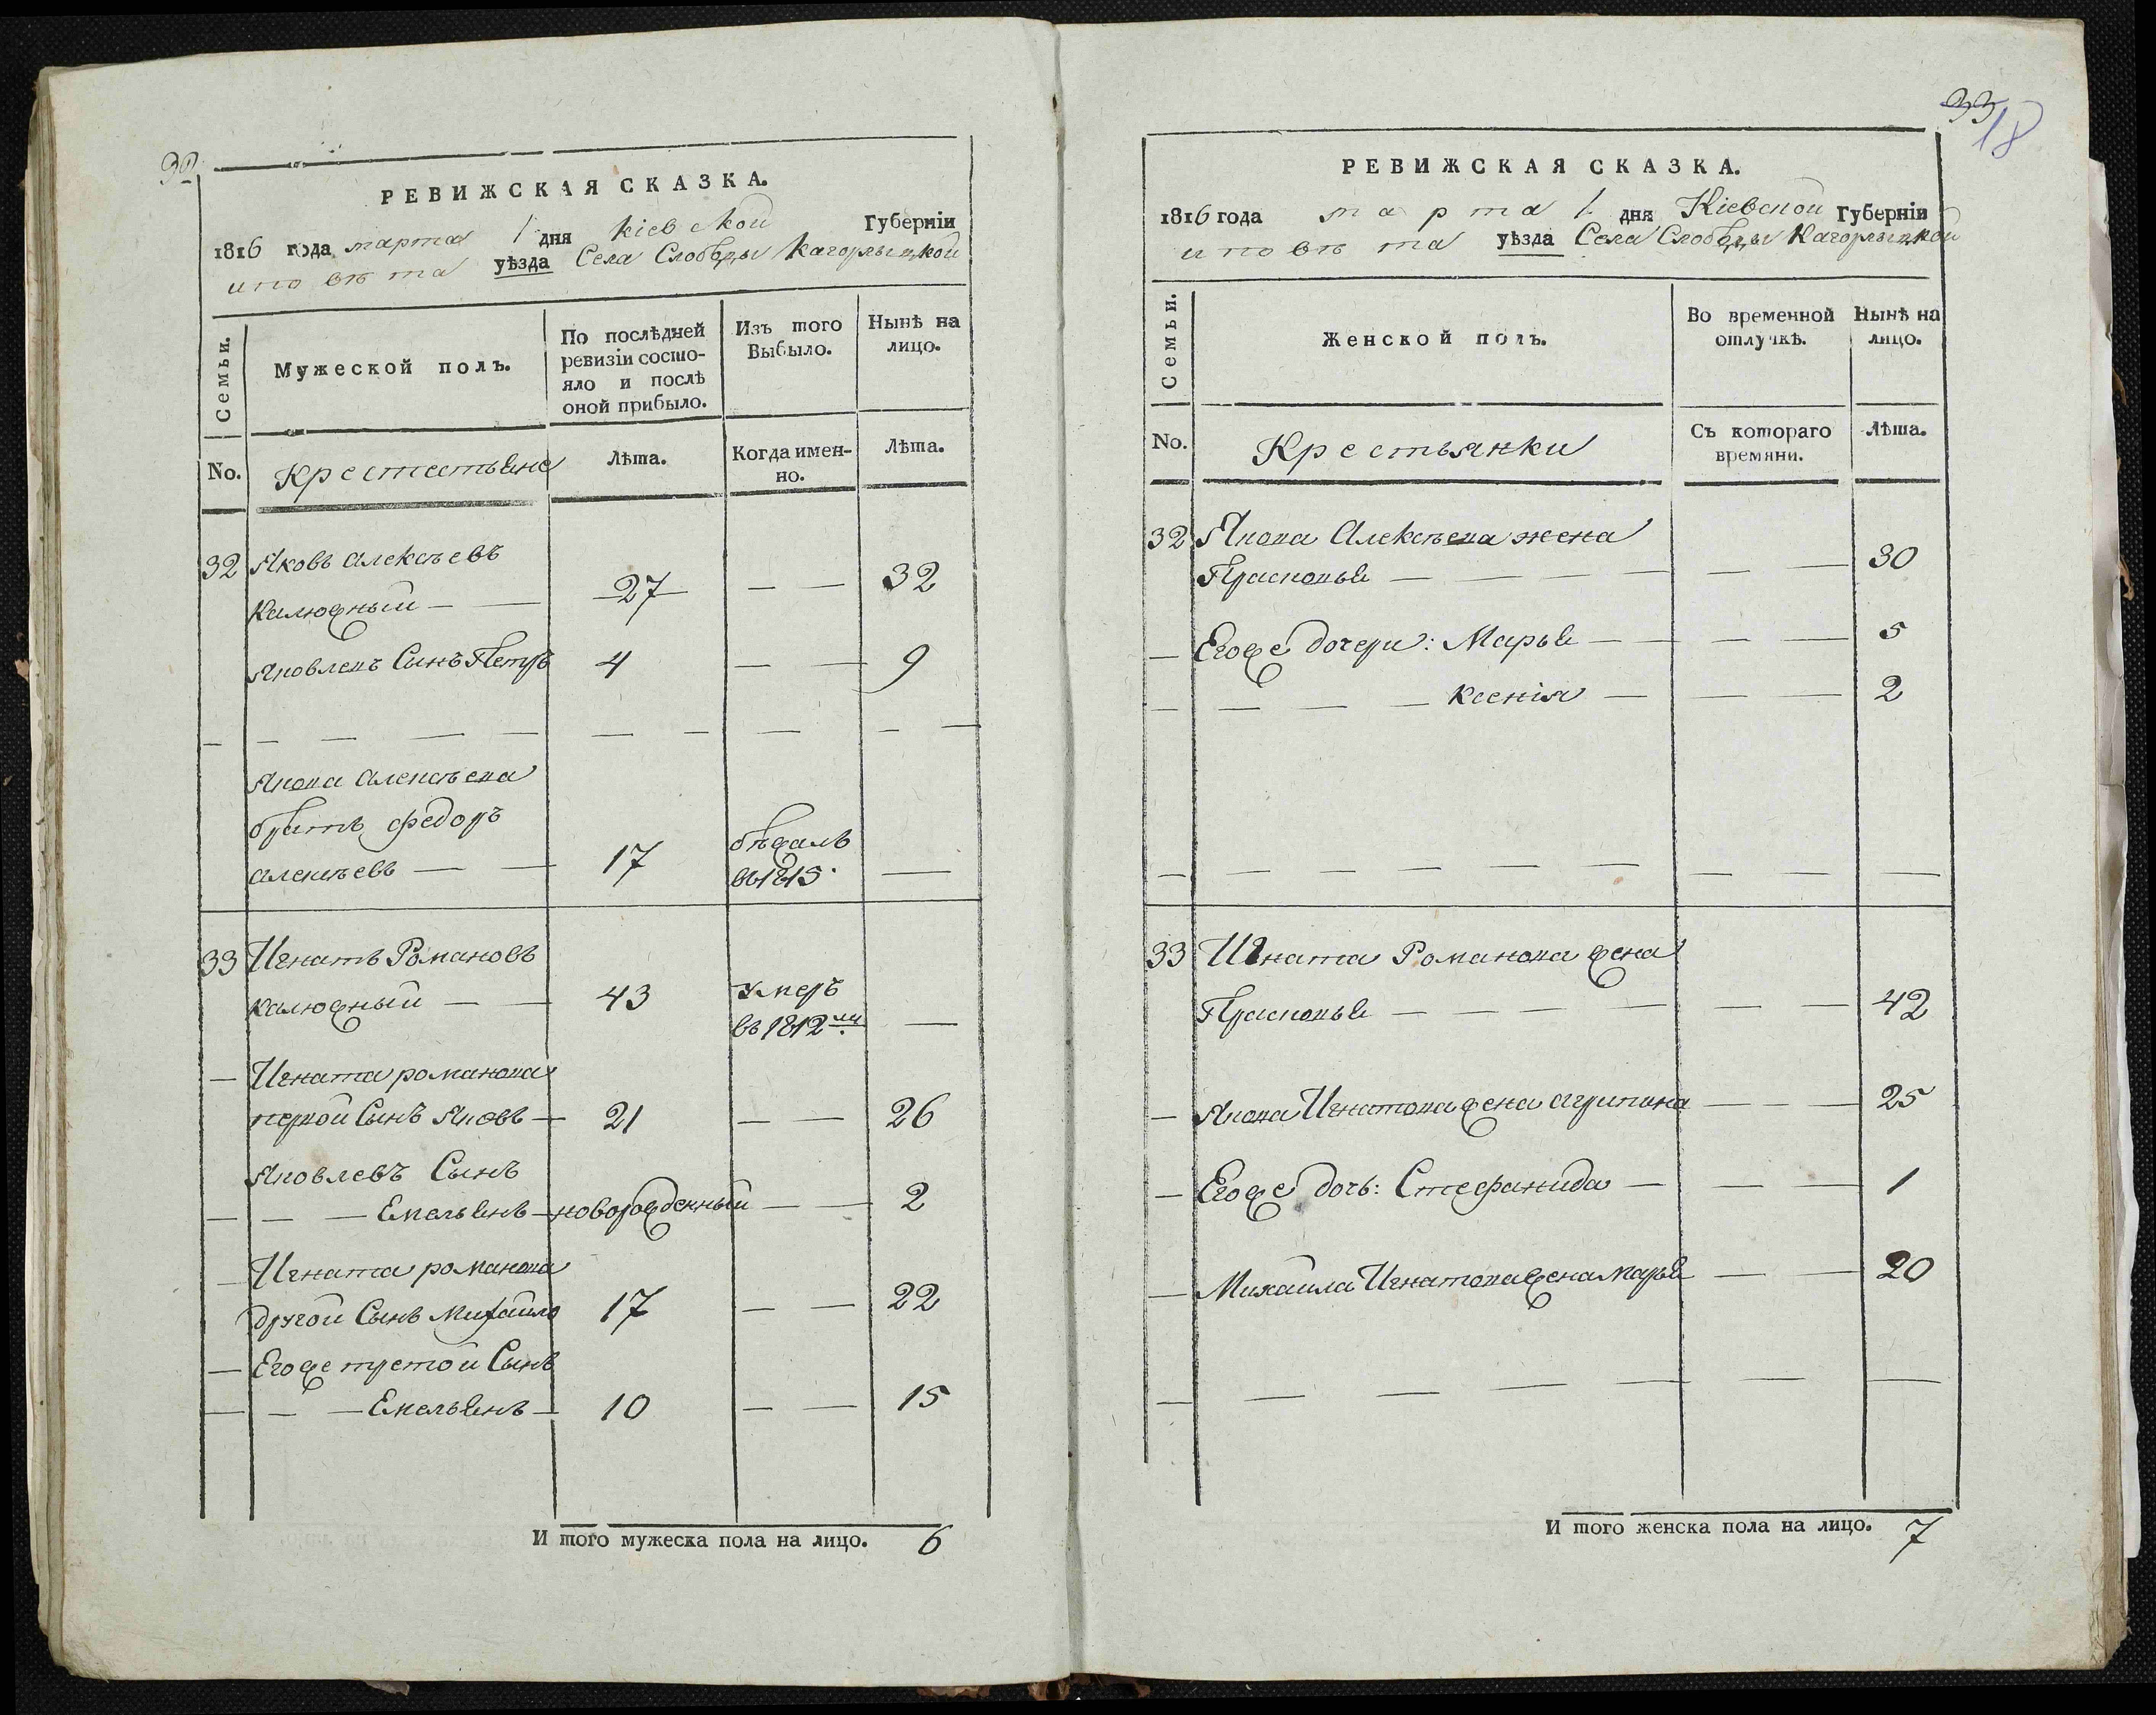 32
РЕВИЖСКАЯ СКАЗКА.
1816 года марта 1 дня Кіевской Губерніи
и повѣта уѣзда Села Слободы Кагорлыцкой
Семьи.
Мужеской полъ.
По послѣдней ревизіи состо-
яло и послѣ оной прибыло.
Изъ того Выбыло.
Нынѣ на лицо.
No.
Крестьяне
Лѣта.
Когда имен-
но.
Лѣта.
32 Яковъ Алексѣевъ
Калюжный — — 27 — — 32
Яковлевъ Сынъ Петръ 4 — — 9
Якова Алексѣева
братъ Федоръ
Алексѣевъ — — 17 бѣжалъ въ 1815. —
33 Игнатъ Романовъ
Калюжный — — 43 умеръ въ 1812 —
— Игната Романова
первой Сынъ Яковъ — 21 — — 26
Яковлевъ Сынъ
— — — Емельянъ — новорожденный — — 2
— Игната Романова
другой Сынъ Михайло 17 — — 22
— Егоже третой Сынъ
— — — Емельянъ — 10 — — 15
И того мужеска пола на лицо. 6
33
18
РЕВИЖСКАЯ СКАЗКА.
1816 года марта 1. дня Кіевской Губерніи
и повѣта уѣзда Села Слободы Кагорлыцкой
Семьи.
Женской полъ.
Во временной отлучкѣ.
Нынѣ на лицо.
No.
Крестьянки
Съ котораго времяни.
Лѣта.
32 Якова Алексѣева жена
Прасковья — — — — — — 30
— Егоже дочери: Марья — — — — 5
— — — — Ксенія — — — 2
33 Игната Романова жена
Прасковья — — — — — — 42
— Якова Игнатова жена Агрипина — — — 25
— Егоже дочь: Стефанида — — — 1
— Михаила Игнатова жена Марья — — 20
И того женска пола на лицо. 7